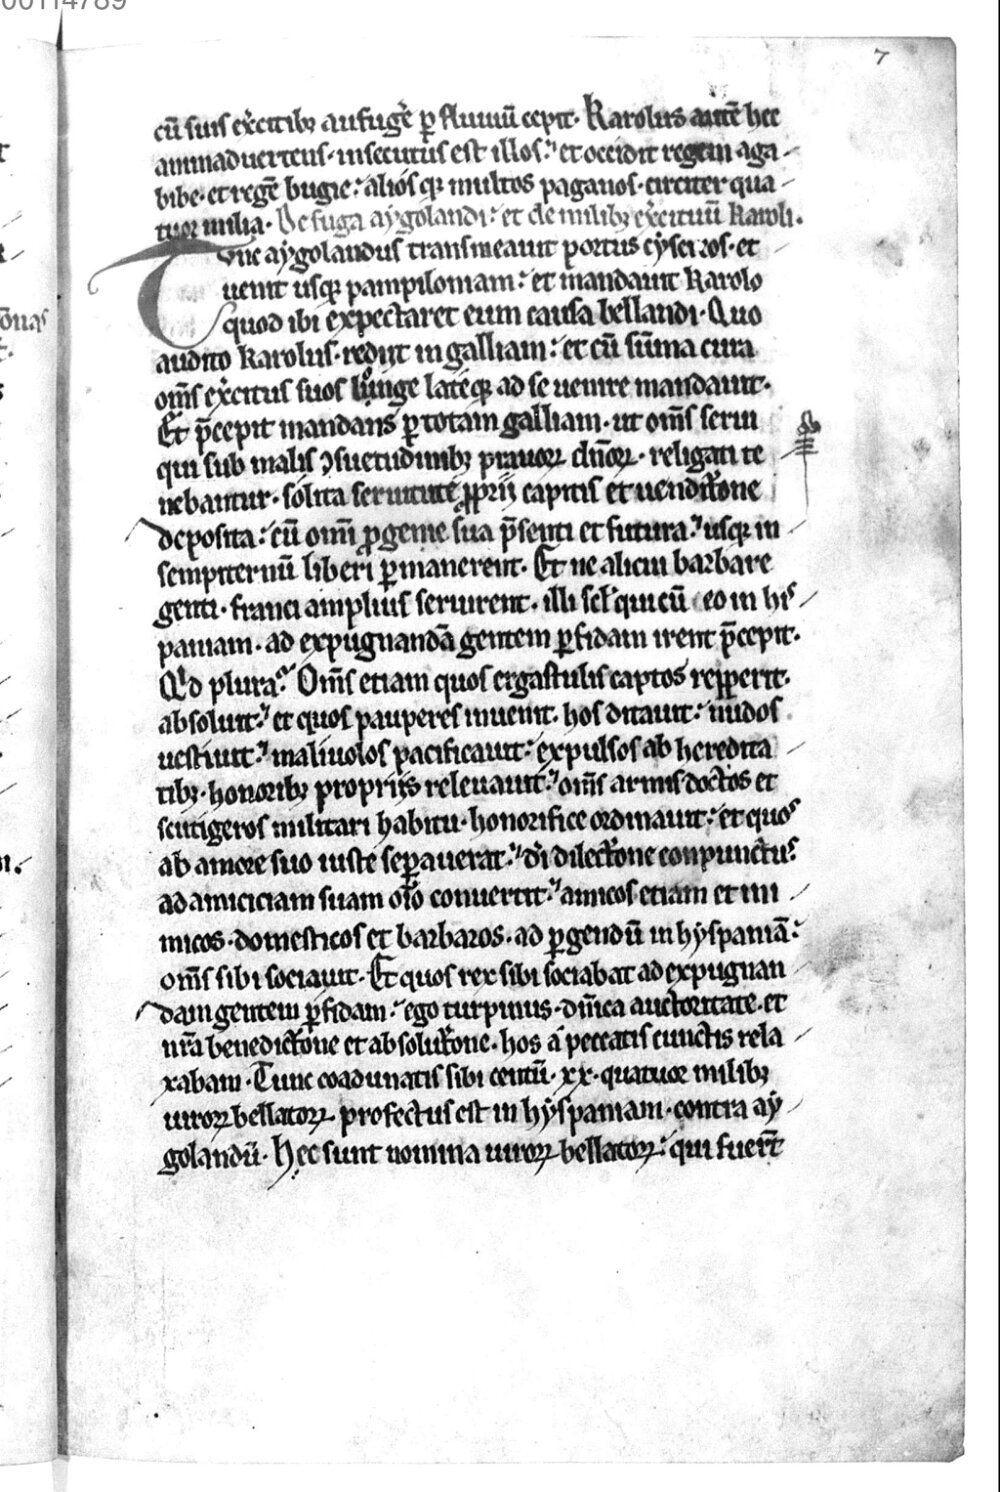 00114789
7
cū suis ex̄citibꝫ aufuge᷑ ꝑ fluuiū cepit· Karolus autē hec
animaduertens· insecutus est illos:' et occidit regem aga-
bibe· et regē bugie:' alios qꝫ multos paganos· circiter qua-
tuor milia· De fuga aygolandi:' et de milibꝫ ex̄cituū Karoli.
Tūc aygolandus transmeauit portus cyseros· et
uenit usqꝫ pampiloniam:' et mandauit Karolo
quod ibi expectaret eum causa bellandi· Quo
audito Karolus· redijt in galliam:' et cū sūma cura
om̄s ex̄citus suos longe lateqꝫ ad se uenire mandauit·
Et p̄cepit mandans ꝑ totam galliam· ut om̄s serui
qui sub malis ꝯsuetudinibꝫ prauoꝝ dn̄oꝝ· religati te
nebantur· solita seruitute ꝓprij capitis et uendic̄one
deposita:' cū omī ꝓgenie sua p̄senti et futura:' usqꝫ in
sempiternū liberi ꝑmanerent· Et ne alicui barbare
genti· franci amplius seruirent· illi scl' qui cū eo in his
paniam· ad expugnandā gentem ꝑfidam irent p̄cepit·
Qͥd plura:' Om̄s etiam quos ergastulis captos repꝑit·
absoluit:' et quos pauperes inuenit· hos ditauit:' nudos
uestiuit:' maliuolos pacificauit:' expulsos ab heredita
tibꝫ· honoribꝫ proprijs releuauit:' om̄s armis doctos et
scutigeros militari habitu· honorifice ordinauit:' et quos
ab amore suo iuste seꝑauerat:' dī dilect̄one conpunctus
ad amiciciam suam oīo conuertit:' amicos etiam et ini
micos· domesticos et barbaros· ad ꝑgendū in hyspaniā:'
om̄s sibi sociauit· Et quos rex sibi sociabat ad expugnan
dam gentem ꝑfidam:' ego turpinus· dn̄ica auctoritate· et
nr̄a benedict̄one et absolut̄one· hos a peccatis cunctis rela
xabam· Tunc coadunatis sibi centū· xx· quatuor milibꝫ
uiroꝝ bellatoꝝ profectus est in hyspaniam· contra ay
golandū· Hec sunt nomina uiroꝝ bellatoꝝ:' qui fuer̄t